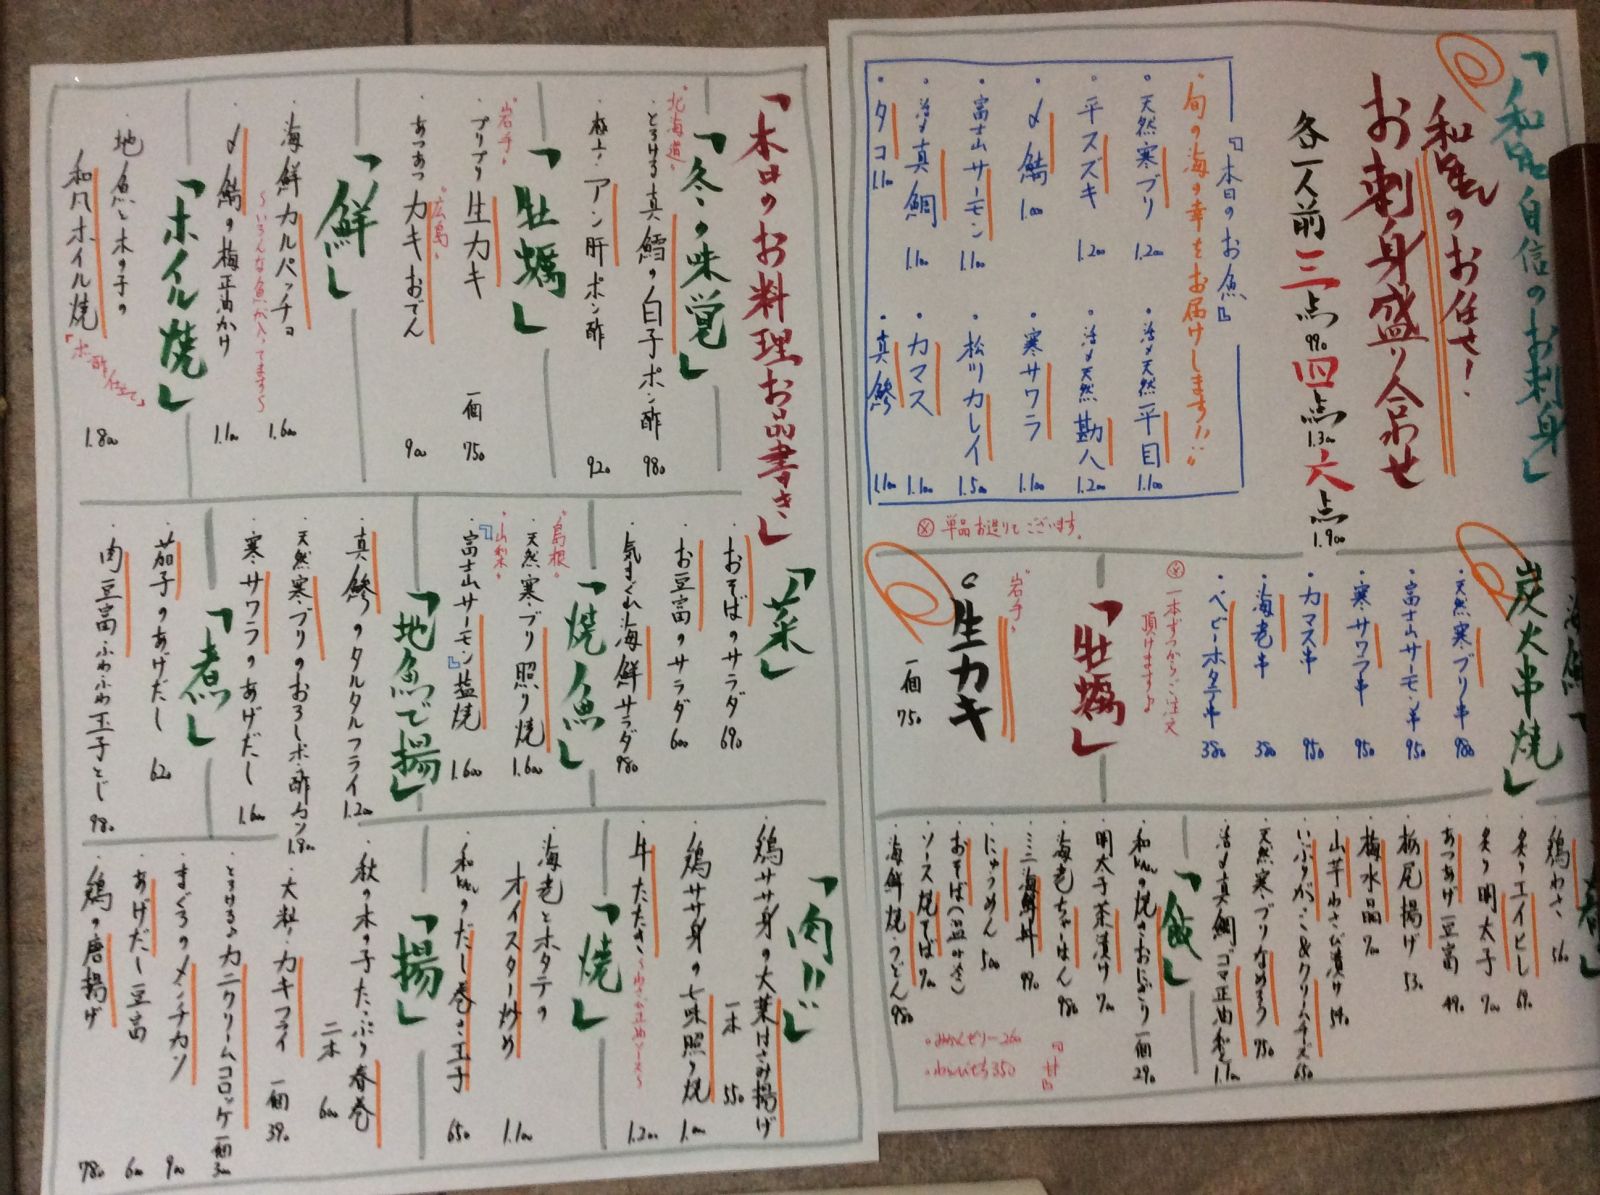 自信のお刺身」
のお任せ!
お刺身盛り合わせ
各一人前 三点 990 四点 1.300 六点 1.900
『本日のお魚』
旬の海の幸をお届けします!!
・天然寒ブリ 1.200
・活〆天然平目 1.100
・平スズキ 1.200
・活〆天然勘八 1.200
・〆鯖 1.000
・寒サワラ 1.100
・富士山サーモン 1.100
・松川カレイ 1.500
・活〆真鯛 1.100
・カマス 1.100
・タコ 1.100
・真鯵 1.100
炭火串焼」
・天然寒ブリ串 980
・富士山サーモン串 950
・寒サワラ串 950
・カマス串 950
・海老串 380
・ベビーホタテ串 380
一本ずつからご注文
頂けます♪
「牡蠣」
"岩手"
生カキ
一個 750
鶏わさ
炙りエイヒレ 690
炙り明太子 700
あつあげ豆富 490
栃尾揚げ 530
梅水晶 700
山芋わさび漬け 590
いぶりがっこ&クリームチーズ 650
天然寒ブリなめろう 950
活〆真鯛ゴマ正油和え 1.100
「飯」
の焼きおにぎり 一個 290
明太子茶漬け 700
海老ちゃーはん 980
ミニ海鮮丼 990
にゅうめん 500
おそば(温or冷)
ソース焼そば 900
海鮮焼うどん 980
『甘』
・みかんゼリー 260
・わらびもち 350
「本日のお料理お品書き」
「冬の味覚」
"北海道"
とろける真鱈の白子ポン酢 980
極上!アン肝ポン酢 920
「牡蠣」
"岩手"
プリプリ生カキ 一個 750
"広島"
あつあつカキおでん 900
「鮮」
・海鮮カルパッチョ 1.600
〜いろんな魚が入ってます〜
・〆鯖の梅正油かけ 1.100
「ホイル焼」
・地魚と木の子の
和風ホイル焼 1.800
「ポン酢仕立て」
「菜」
・おそばのサラダ 690
・お豆富のサラダ 600
気まぐれ海鮮サラダ 980
「焼魚」
"島根"
・天然寒ブリ照り焼 1.600
"山梨"
『富士山サーモン』塩焼 1.600
「地魚で揚」
・真鯵のタルタルフライ 1.200
・天然寒ブリのおろしポン酢カツ 1.800
・寒サワラのあげだし 1.600
「煮」
・茄子のあげだし 620
・肉豆富ふわふわ玉子とじ 980
「肉!!」
・鶏ササ身の大葉はさみ揚げ
一本 550
・鶏ササ身の七味照り焼 1.000
・牛たたき 1.200
「焼」
・海老とホタテの
オイスター炒め 1.100
のだし巻き玉子 650
「揚」
・秋の木の子たっぷり春巻
二本 600
・大粒!カキフライ 一個 390
・とろけるカニクリームコロッケ 一個 300
・まぐろのメンチカツ 900
・あげだし豆富 600
・鶏の唐揚げ 780